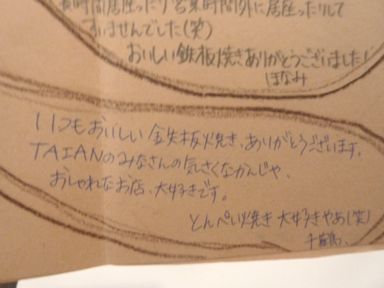 長時間居座ったり営業時間外に居座ったりして
すいませんでした(笑)
おいしい鉄板焼きありがとうございました!
ほなみ
いつもおいしい鉄板焼き、ありがとうございます。
TAIANのみなさんの気さくなかんじや、
おしゃれなお店、大好きです。
とんぺい焼き大好きやぁ(笑)
千鶴、